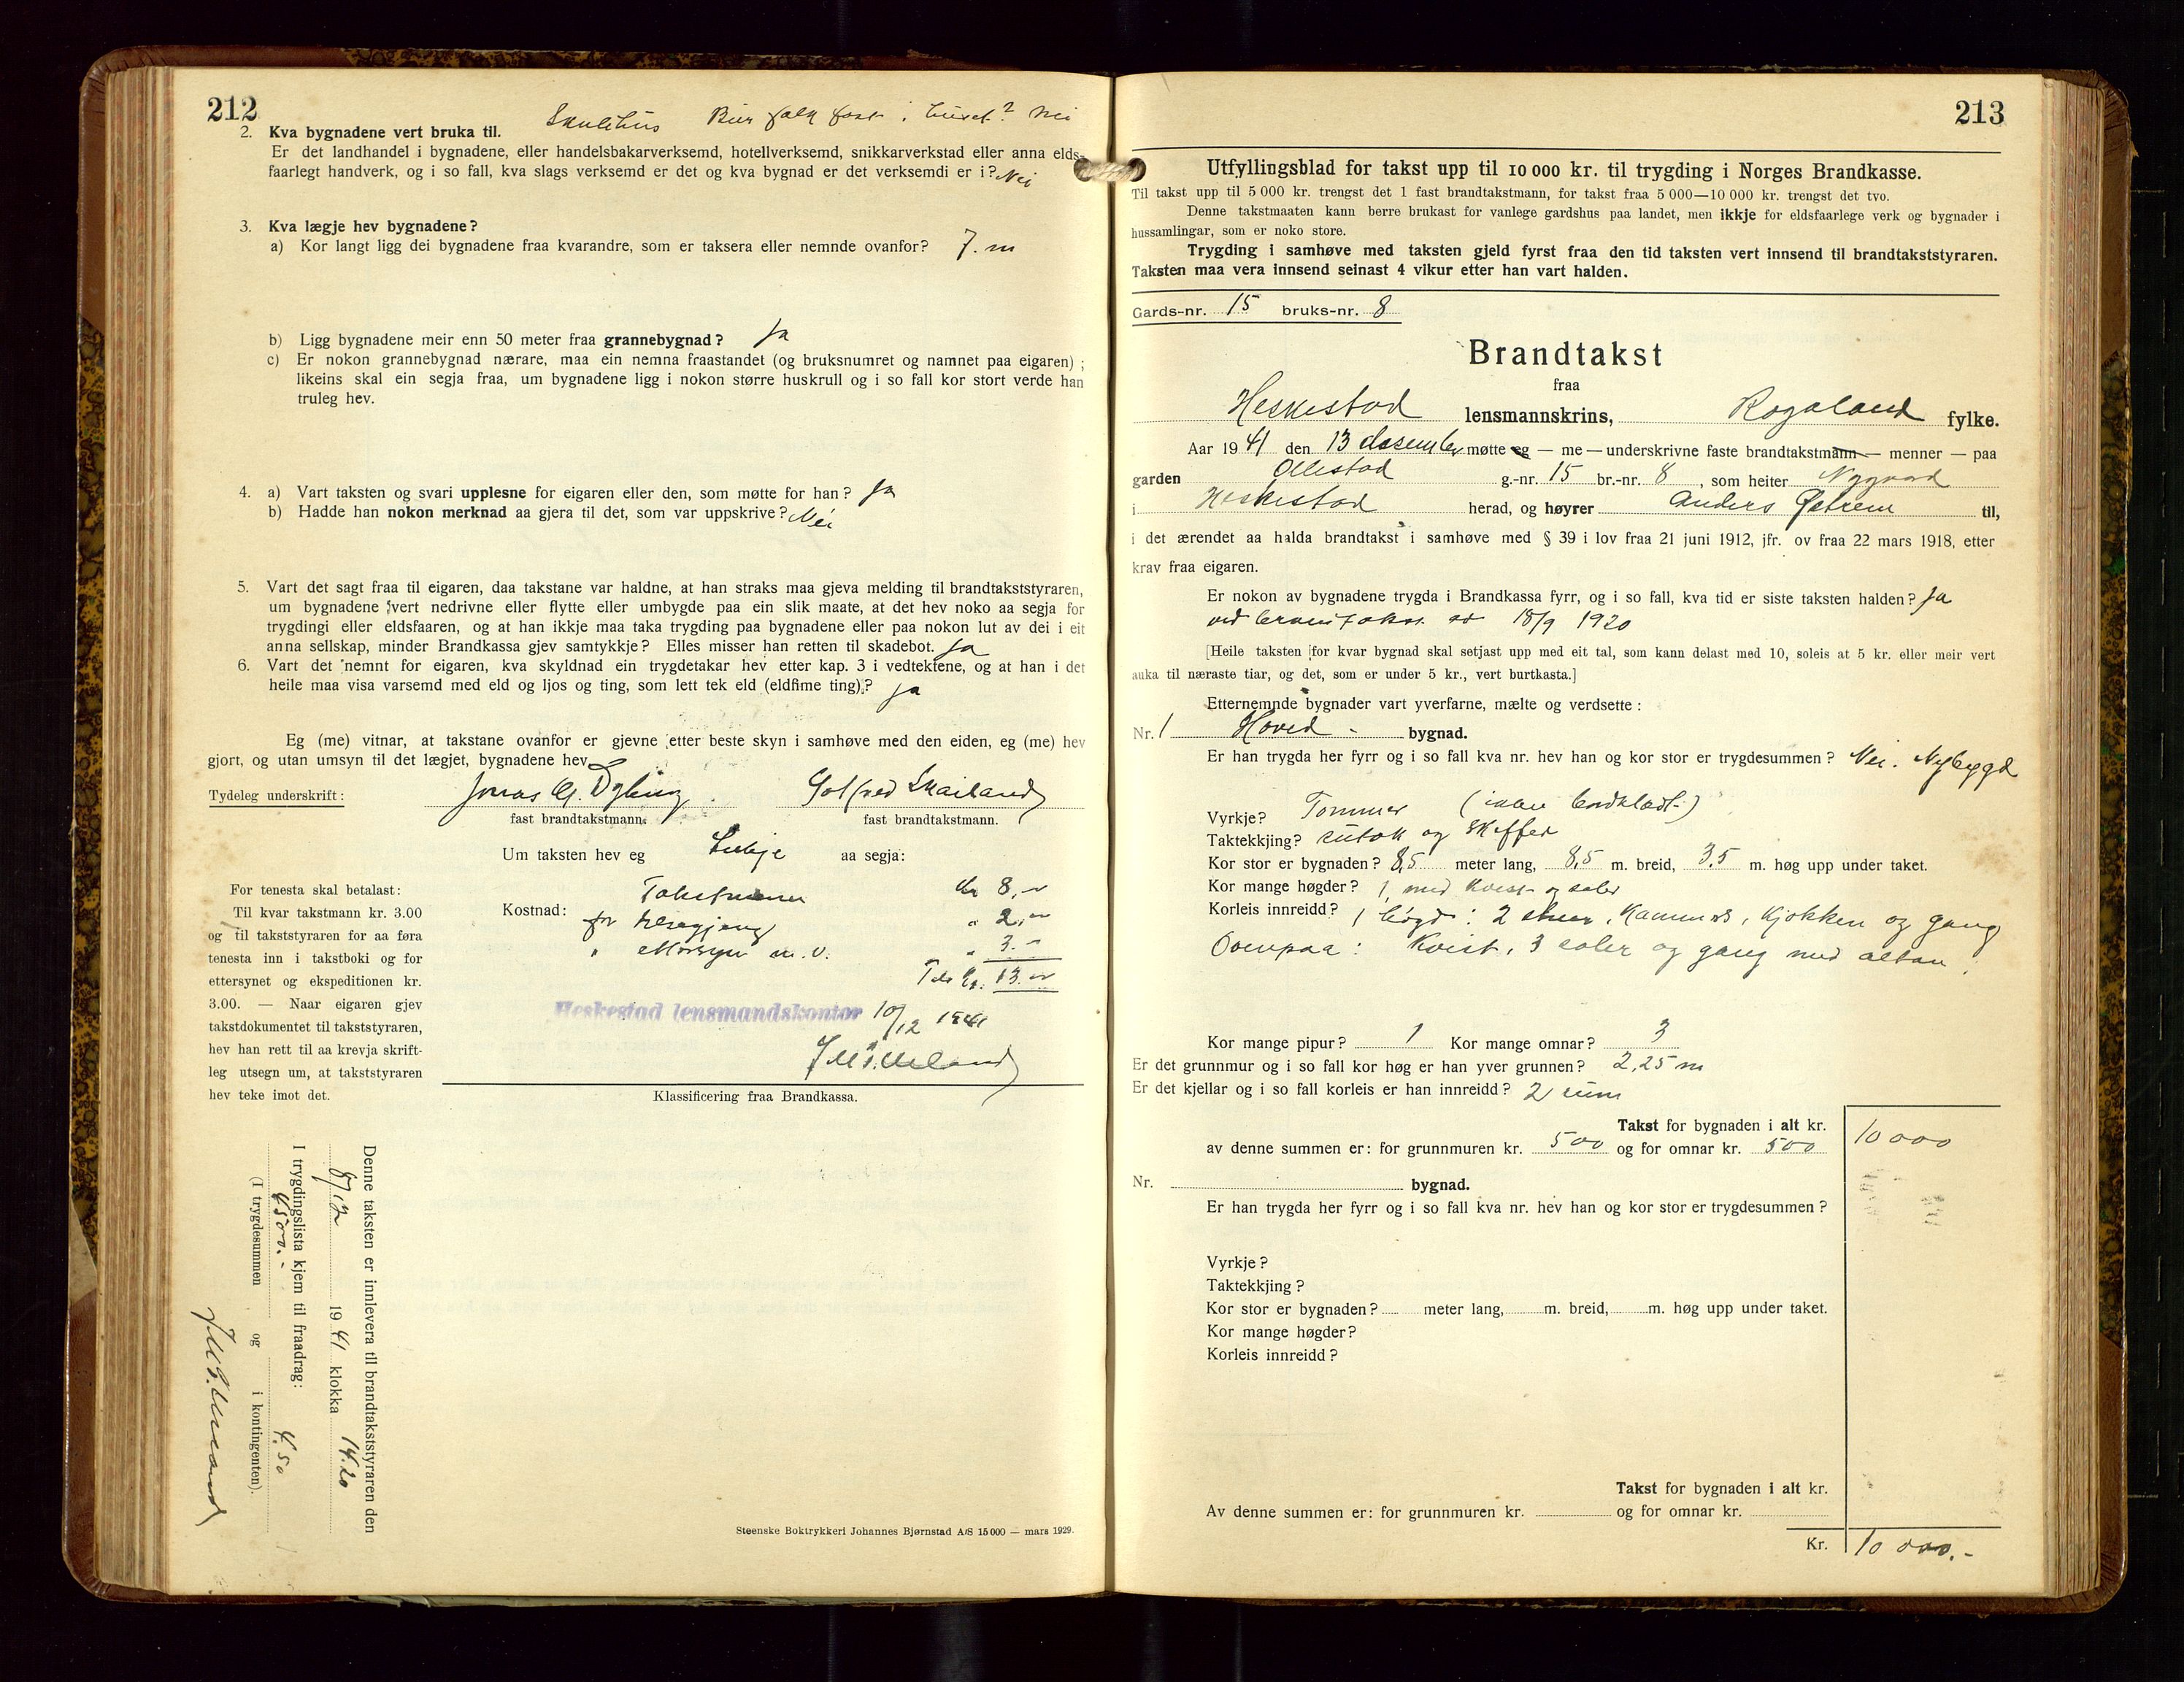 212
2. Kva bygnadene vert bruka til. Skulehus Bur folk fast i huset? Nei
Er det landhandel i bygnadene, eller handelsbakarverksemd, hotellverksemd, snikkarverkstad eller anna elds-
faarlegt handverk, og i so fall, kva slags verksemd er det og kva bygnad er det verksemdi er i? Nei
3. Kva lægje hev bygnadene?
a) Kor langt ligg dei bygnadene fraa kvarandre, som er taksera eller nemnde ovanfor? 7. m
b) Ligg bygnadene meir enn 50 meter fraa grannebygnad? Ja
c) Er nokon grannebygnad nærare, maa ein nemna fraastandet (og bruksnumret og namnet paa eigaren) ;
likeins skal ein segja fraa, um bygnadene ligg i nokon større huskrull og i so fall kor stort verde han
truleg hev.
4. a) Vart taksten og svari upplesne for eigaren eller den, som møtte for han? Ja
b) Hadde han nokon merknad aa gjera til det, som var uppskrive? Nei
5. Vart det sagt fraa til eigaren, daa takstane var haldne, at han straks maa gjeva melding til brandtakststyraren,
um bygnadene vert nedrivne eller flytte eller umbygde paa ein slik maate, at det hev noko aa segja for
trygdingi eller eldsfaaren, og at han ikkje maa taka trygding paa bygnadene eller paa nokon lut av dei i eit
anna sellskap, minder Brandkassa gjev samtykkje? Elles misser han retten til skadebot. Ja
6. Vart det nemnt for eigaren, kva skyldnad ein trygdetakar hev etter kap. 3 i vedtektene, og at han i det
heile maa visa varsemd med eld og ljos og ting, som lett tek eld (eldfime ting)? Ja
Eg (me) vitnar, at takstane ovanfor er gjevne etter beste skyn i samhøve med den eiden, eg (me) hev
gjort, og utan umsyn til det lægjet, bygnadene hev.
Tydeleg underskrift: Jonas G. Dybing Gotfred Skailand
fast brandtakstmann. fast brandtakstmann.
Um taksten hev eg Inkje aa segja:
Kostnad: Takstmenn kr 8,-
for 2,-
" m. v. " 3.-
Tils kr. 13.-
Heskestad lensmandskontor 10/12 1941
For tenesta skal betalast:
Til kvar takstmann kr. 3.00
og til takststyraren for aa føra
tenesta inn i takstboki og for
ettersynet og ekspeditionen kr.
3.00. — Naar eigaren gjev
takstdokumentet til takststyraren,
hev han rett til aa krevja skrift-
leg utsegn um, at takststyraren
hev teke imot det.
Klassificering fraa Brandkassa.
Denne taksten er innlevera til brandtakststyraren den
1941 klokka 14.20
I trygdingslista kjem til fraadrag:
4500.- 4.50
(I trygdesummen og i kontingenten).
Steenske Boktrykkeri Johannes Bjørnstad A/S 15 000 — mars 1929.
213
Utfyllingsblad for takst upp til 10 000 kr. til trygding i Norges Brandkasse.
Til takst upp til 5 000 kr. trengst det 1 fast brandtakstmann, for takst fraa 5 000—10 000 kr. trengst det tvo.
Denne takstmaaten kann berre brukast for vanlege gardshus paa landet, men ikkje for eldsfaarlege verk og bygnader i
hussamlingar, som er noko store.
Trygding i samhøve med taksten gjeld fyrst fraa den tid taksten vert innsend til brandtakststyraren.
Taksten maa vera innsend seinast 4 vikur etter han vart halden.
Gards-nr. 15 bruks-nr. 8
Brandtakst
fraa
Heskestad lensmannskrins, Rogaland fylke.
Aar 1941 den 13 desember møtte eg — me — underskrivne faste brandtakstmann — menner — paa
garden Ollestad g.-nr. 15 br.-nr. 8, som heiter Nygaard
i Heskestad herad, og høyrer Anders Østrem til,
i det ærendet aa halda brandtakst i samhøve med § 39 i lov fraa 21 juni 1912, jfr. ov fraa 22 mars 1918, etter
krav fraa eigaren.
Er nokon av bygnadene trygda i Brandkassa fyrr, og i so fall, kva tid er siste taksten halden? Ja
ved branntakst av 18/9 1920
[Heile taksten for kvar bygnad skal setjast upp med eit tal, som kann delast med 10, soleis at 5 kr. eller meir vert
auka til næraste tiar, og det, som er under 5 kr., vert burtkasta.]
Etternemnde bygnader vart yverfarne, mælte og verdsette:
Nr. 1 Hoved - bygnad.
Er han trygda her fyrr og i so fall kva nr. hev han og kor stor er trygdesummen? Nei. Nybygd
Vyrkje? Tømmer (innv bordklædt.)
Taktekkjing? sutak og skiffer
Kor stor er bygnaden? 8,5 meter lang, 8,5 m. breid, 3,5 m. høg upp under taket.
Kor mange høgder? 1, med kvist og saler
Korleis innreidd? 1 høgd: 2 stuer, kammers, kjøkken og gang
Ovenpaa: Kvist, 3 saler og gang med altan.
Kor mange pipur? 1 Kor mange omnar? 3
Er det grunnmur og i so fall kor høg er han yver grunnen? 2,25 m
Er det kjellar og i so fall korleis er han innreidd? 2 rum
Takst for bygnaden i alt kr. 10 000
av denne summen er: for grunnmuren kr. 500 og for omnar kr. 500
Nr. bygnad.
Er han trygda her fyrr og i so fall kva nr. hev han og kor stor er trygdesummen?
Vyrkje?
Taktekkjing?
Kor stor er bygnaden? meter lang, m. breid, m. høg upp under taket.
Kor mange høgder?
Korleis innreidd?
Takst for bygnaden i alt kr.
Av denne summen er: for grunnmuren kr. og for omnar kr.
Kr. 10 000.-